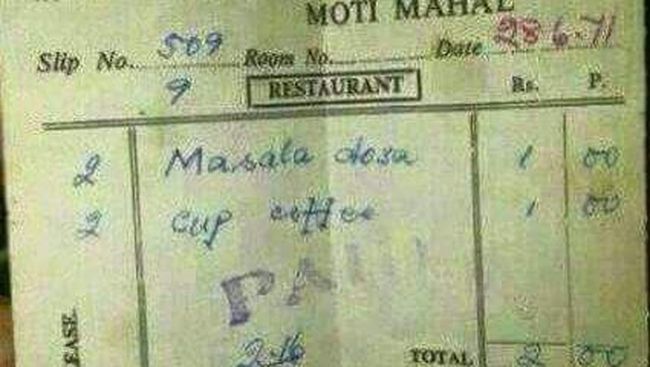 MOTI MAHAL
Slip No. 509 Room No. Date 28-6-71
9 RESTAURANT Rs. P.
2 Masala dosa 1 00
2 cup coffee 1 00
PAID
2.16 TOTAL 2 00